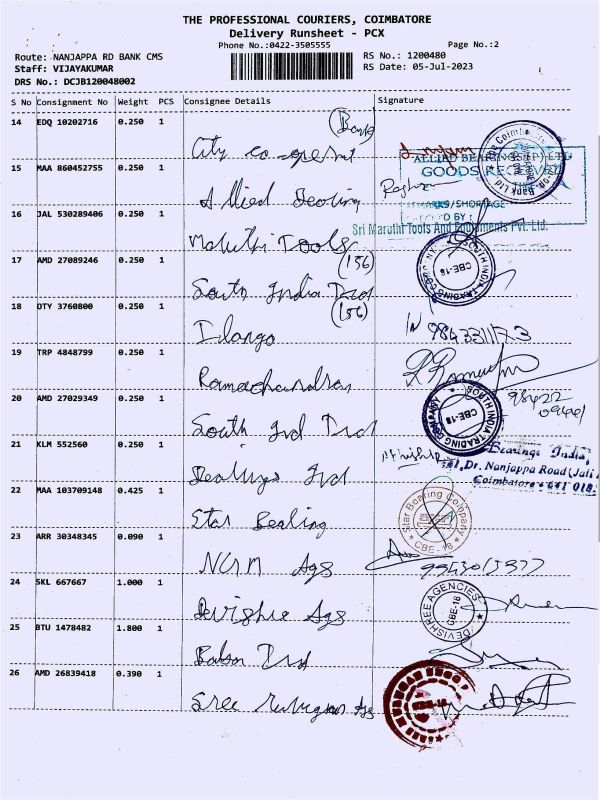 THE PROFESSIONAL COURIERS, COIMBATORE
Delivery Runsheet - PCX
Phone No.:0422-3505555
Page No.:2
Route: NANJAPPA RD BANK CMS
Staff: VIJAYAKUMAR
DRS No.: DCJB120048002
RS No.: 1200480
RS Date: 05-Jul-2023
S No Consignment No Weight PCS Consignee Details Signature
14 EDQ 10202716 0.250 1
(Bank)
City co-operat
15 MAA 860452755 0.250 1
Allied Bearing
ALLIED BEARINGS (P) LTD
GOODS RECEIVED
REMARKS/SHORTAGE
16 JAL 530289406 0.250 1
Maruthi Tools
Sri Maruthi Tools And Equipments Pvt. Ltd.
17 AMD 27089246 0.250 1
(156)
South India Trd
SOUTH INDIA TRADING
CBE-18
18 OTY 3760800 0.250 1
(156)
Ilango
9843311773
19 TRP 4848799 0.250 1
Ramachandran
98422
20 AMD 27029349 0.250 1
South Ind Trd
SOUTH INDIA TRADING COMPANY
CBE-18
21 KLM 552560 0.250 1
Bearings Ind
Bearings India,
Dr. Nanjappa Road
Coimbatore - 641 018.
22 MAA 103709148 0.425 1
Star Bearing
Star Bearing Company
CBE - 18
23 ARR 30348345 0.090 1
Ags
24 SKL 667667 1.000 1
Devishree Ags
DEVISHREE AGENCIES
CBE-18
25 BTU 1478482 1.800 1
Trd
26 AMD 26839418 0.390 1
Sree Murugan Ags